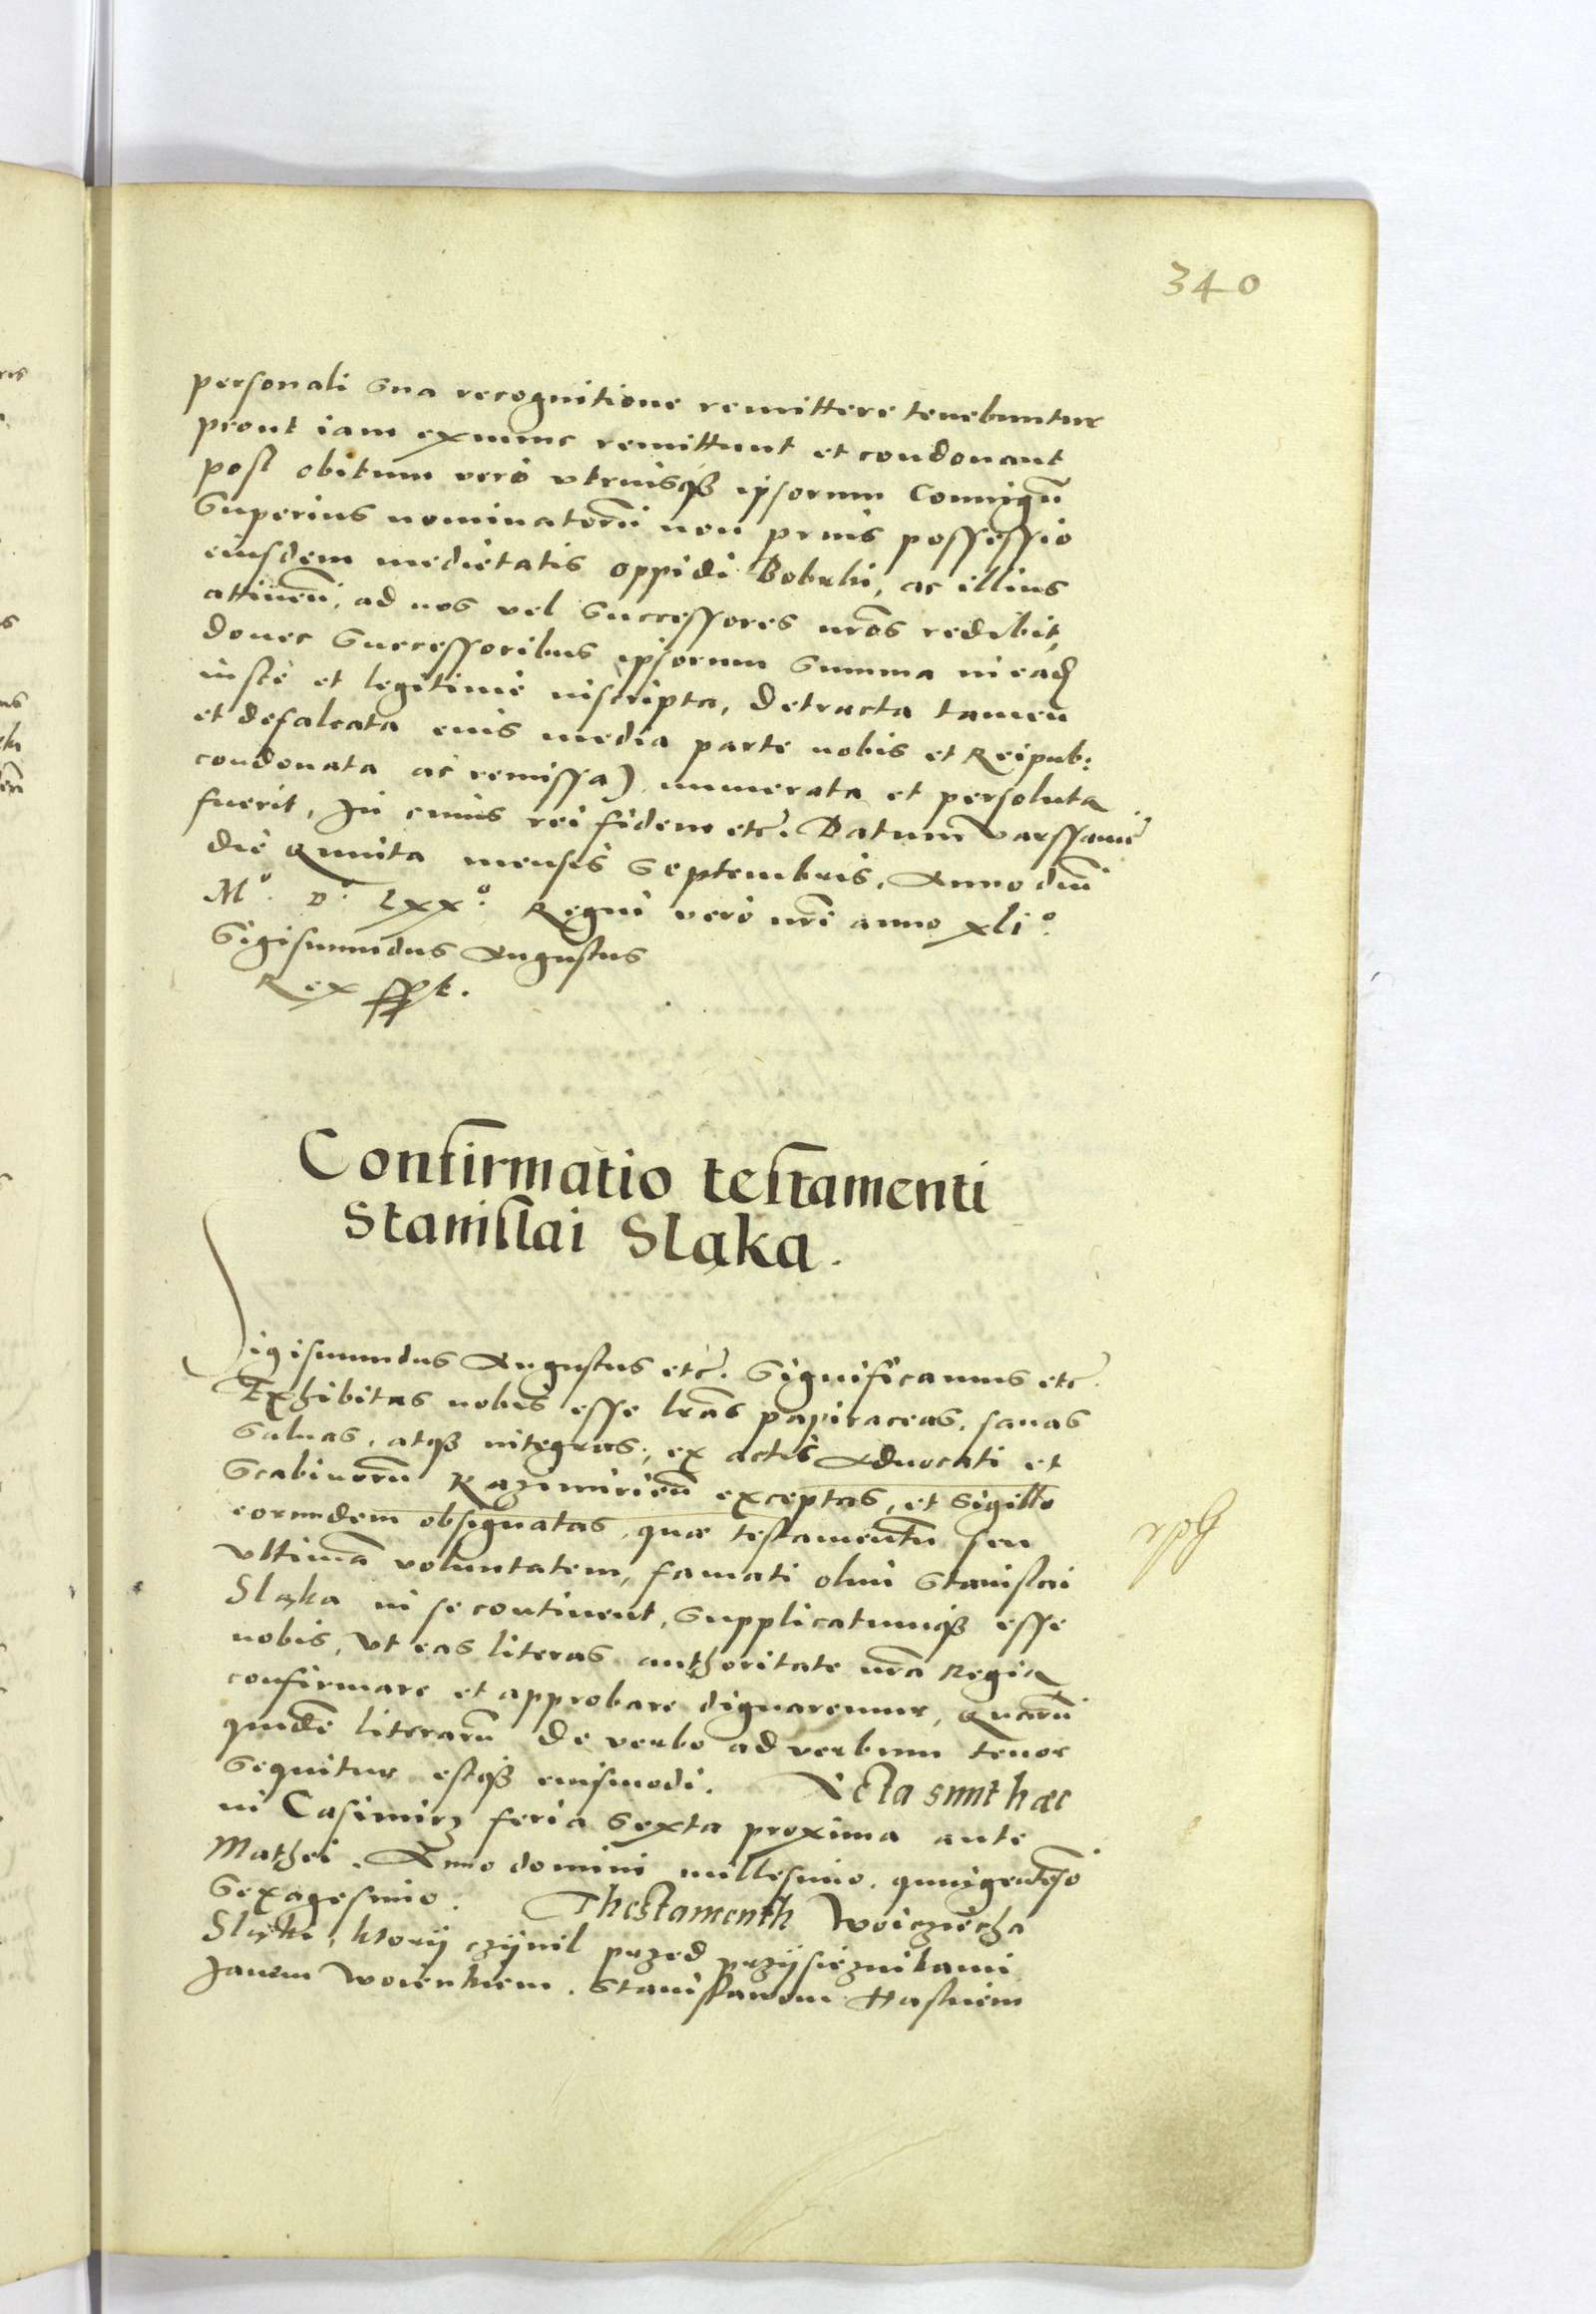 340
personali sua recognitione remittere tenebuntur
prout iam exnunc remittunt et condonant
post obitum vero vtriusq3 ipsorum Coniugũ
superius nominatorũ non prius possessio
eiusdem medietatis oppidi Bobrki, ac illius
attineñ, ad nos vel successores nr̃os redibit,
donec successoribus ipsorum summa in ead
iuste et legitime inscripta, detracta tamen
et defalcata eius media parte nobis et Reipub:
condonata ac remissa) numerata et persoluta
fuerit, In cuius rei fidem etc̃. Datum Varssauie
die Quinta mensis Septembris, Anno dñi
Mº. Dº. Lxxº. Regni vero nr̃i anno xliº.
Sigismundus Augustus
Rex sspt.
Confirmatio testamenti
Stanislai Sląka.
Sigismundus Augustus etc̃. Significamus etc̃.
Exhibitas nobis esse lr̃as papiraceas, sanas
saluas, atq3 integras, ex actis Aduocati et
Scabinorũ Kazimirieñ exceptas, et sigillo
eorundem obsignatas, quæ testamentũ seu
vltimã voluntatem, famati olim Stanislai
Sląka in se continent, supplicatumq3 esse
nobis, vt eas literas authoritate nr̃a Regia
confirmare et approbare dignaremur, Quarũ
quidẽ literarũ de verbo ad verbum tenor
sequitur estq3 eiusmodi. Acta sunt hæc
in Casimirz feria sexta proxima ante
Mathei. Anno domini millesimo quingentesĩo
sexagesimo. Thestamenth Woicziecha
Sląki, ktorÿ czÿnil przed przÿsięznikami
Janem Woienkiem. Stanislawem